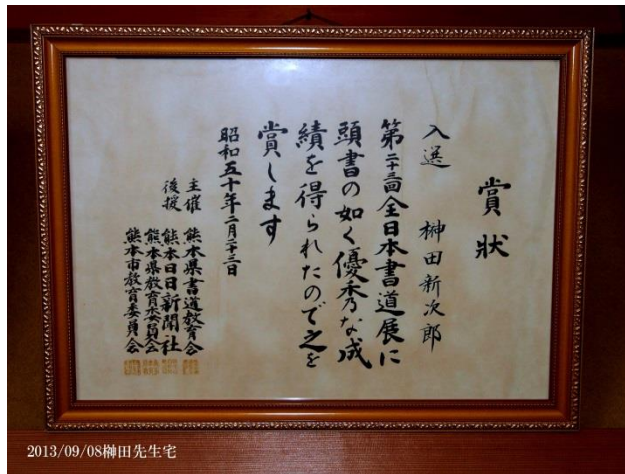 賞狀
入選 榊田新次郎
第二十三回全日本書道展に
頭書の如く優秀な成
績を得られたので之を
賞します
昭和五十年二月二十三日
主催 熊本県書道教育会
後援 熊本日日新聞社
熊本県教育委員会
熊本市教育委員会
2013/09/08榊田先生宅